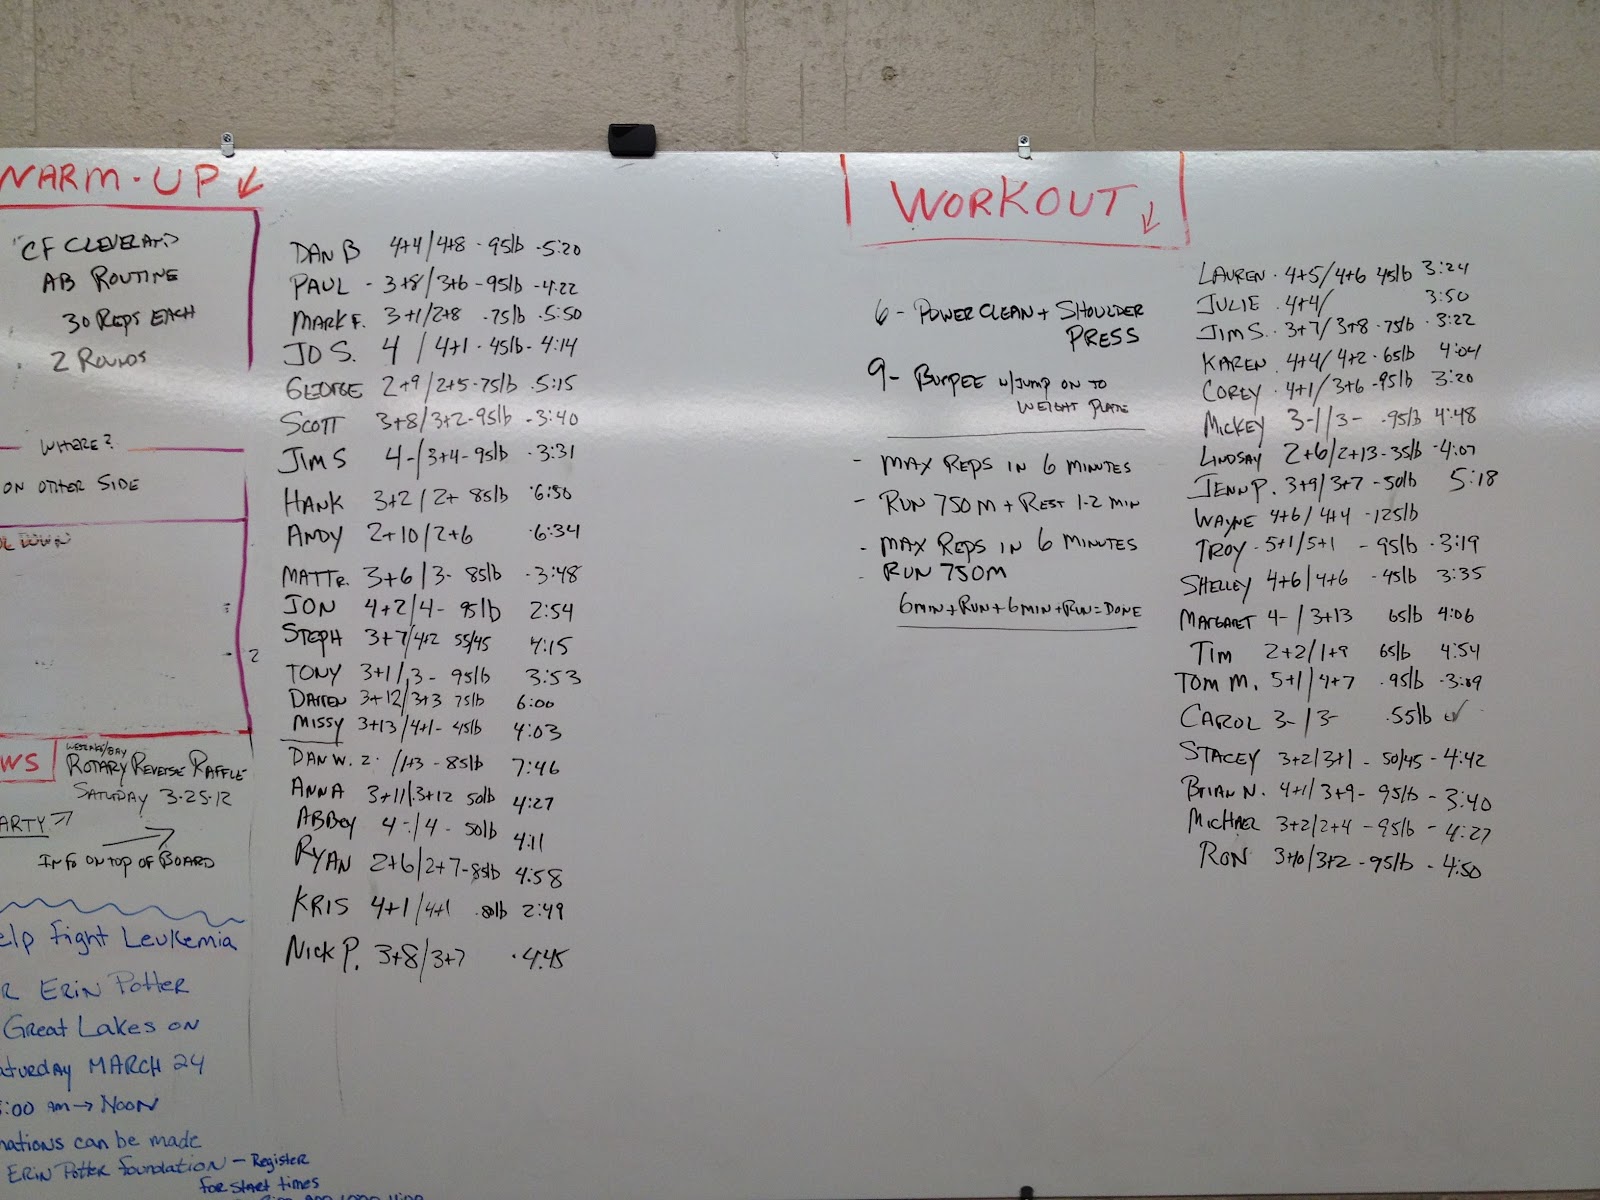 WARM-UP
CF CLEVELAND
AB ROUTINE
30 REPS EACH
2 ROUNDS
WHERE?
ON OTHER SIDE
DOWN
2
WS
ROTARY REVERSE RAFFLE
SATURDAY 3-25-12
ARTY
INFO ON TOP OF BOARD
elp fight Leukemia
R ERIN Potter
Great Lakes on
aturday MARCH 24
:00 am → NOON
nations can be made
ERIN Potter foundation - Register
for start times
DAN B 4+4/4+8 - 95lb - 5:20
PAUL - 3+8/3+6 - 95lb - 4:22
MARK F. 3+1/2+8 . 75lb . 5:50
JO S. 4 / 4+1 - 45lb - 4:14
GEORGE 2+9/2+5 - 75lb . 5:15
SCOTT 3+8/3+2 - 95lb - 3:40
JIM S 4-/3+4 - 95lb - 3:31
HANK 3+2/2+ 85lb . 6:50
ANDY 2+10/2+6 . 6:34
MATT R. 3+6/3- 85lb - 3:48
JON 4+2/4- 95lb 2:54
STEPH 3+7/4+2 55/45 4:15
TONY 3+1/3- 95lb 3:53
DARREN 3+12/3+3 75lb 6:00
MISSY 3+13/4+1 - 45lb 4:03
DAN W. 2- /1+3 - 85lb 7:46
ANNA 3+11/3+12 50lb 4:27
ABBEY 4-/4- 50lb 4:11
RYAN 2+6/2+7 - 85lb 4:58
KRIS 4+1/4+1 lb 2:49
NICK P. 3+8/3+7 . 4:45
WORKOUT
6 - POWER CLEAN + SHOULDER
PRESS
9 - BURPEE W/JUMP ON TO
WEIGHT PLATE
- MAX REPS IN 6 MINUTES
- RUN 750M + REST 1-2 MIN
- MAX REPS IN 6 MINUTES
- RUN 750M
6MIN+RUN+6MIN+RUN=DONE
LAUREN . 4+5/4+6 45lb 3:24
JULIE . 4+4/ 3:50
JIM S. 3+7/3+8 . 75lb . 3:22
KAREN . 4+4/4+2 - 65lb 4:04
COREY . 4+1/3+6 - 95lb 3:20
MICKEY 3-/3- . 95lb 4:48
LINDSAY 2+6/2+13 - 35lb - 4:07
JENN P. 3+9/3+7 - 50lb 5:18
WAYNE 4+6/4+4 - 125lb
TROY - 5+1/5+1 - 95lb . 3:19
SHELLEY 4+6/4+6 - 45lb 3:35
MARGARET 4-/3+13 65lb 4:06
TIM 2+2/1+9 65lb 4:54
TOM M. 5+1/4+7 . 95lb
CAROL 3-/3- . 55lb ✓
STACEY 3+2/3+1 - 50/45 - 4:42
BRIAN N. 4+1/3+9 - 95lb - 3:40
MICHAEL 3+2/2+4 - 95lb - 4:27
RON 3+10/3+2 - 95lb - 4:50